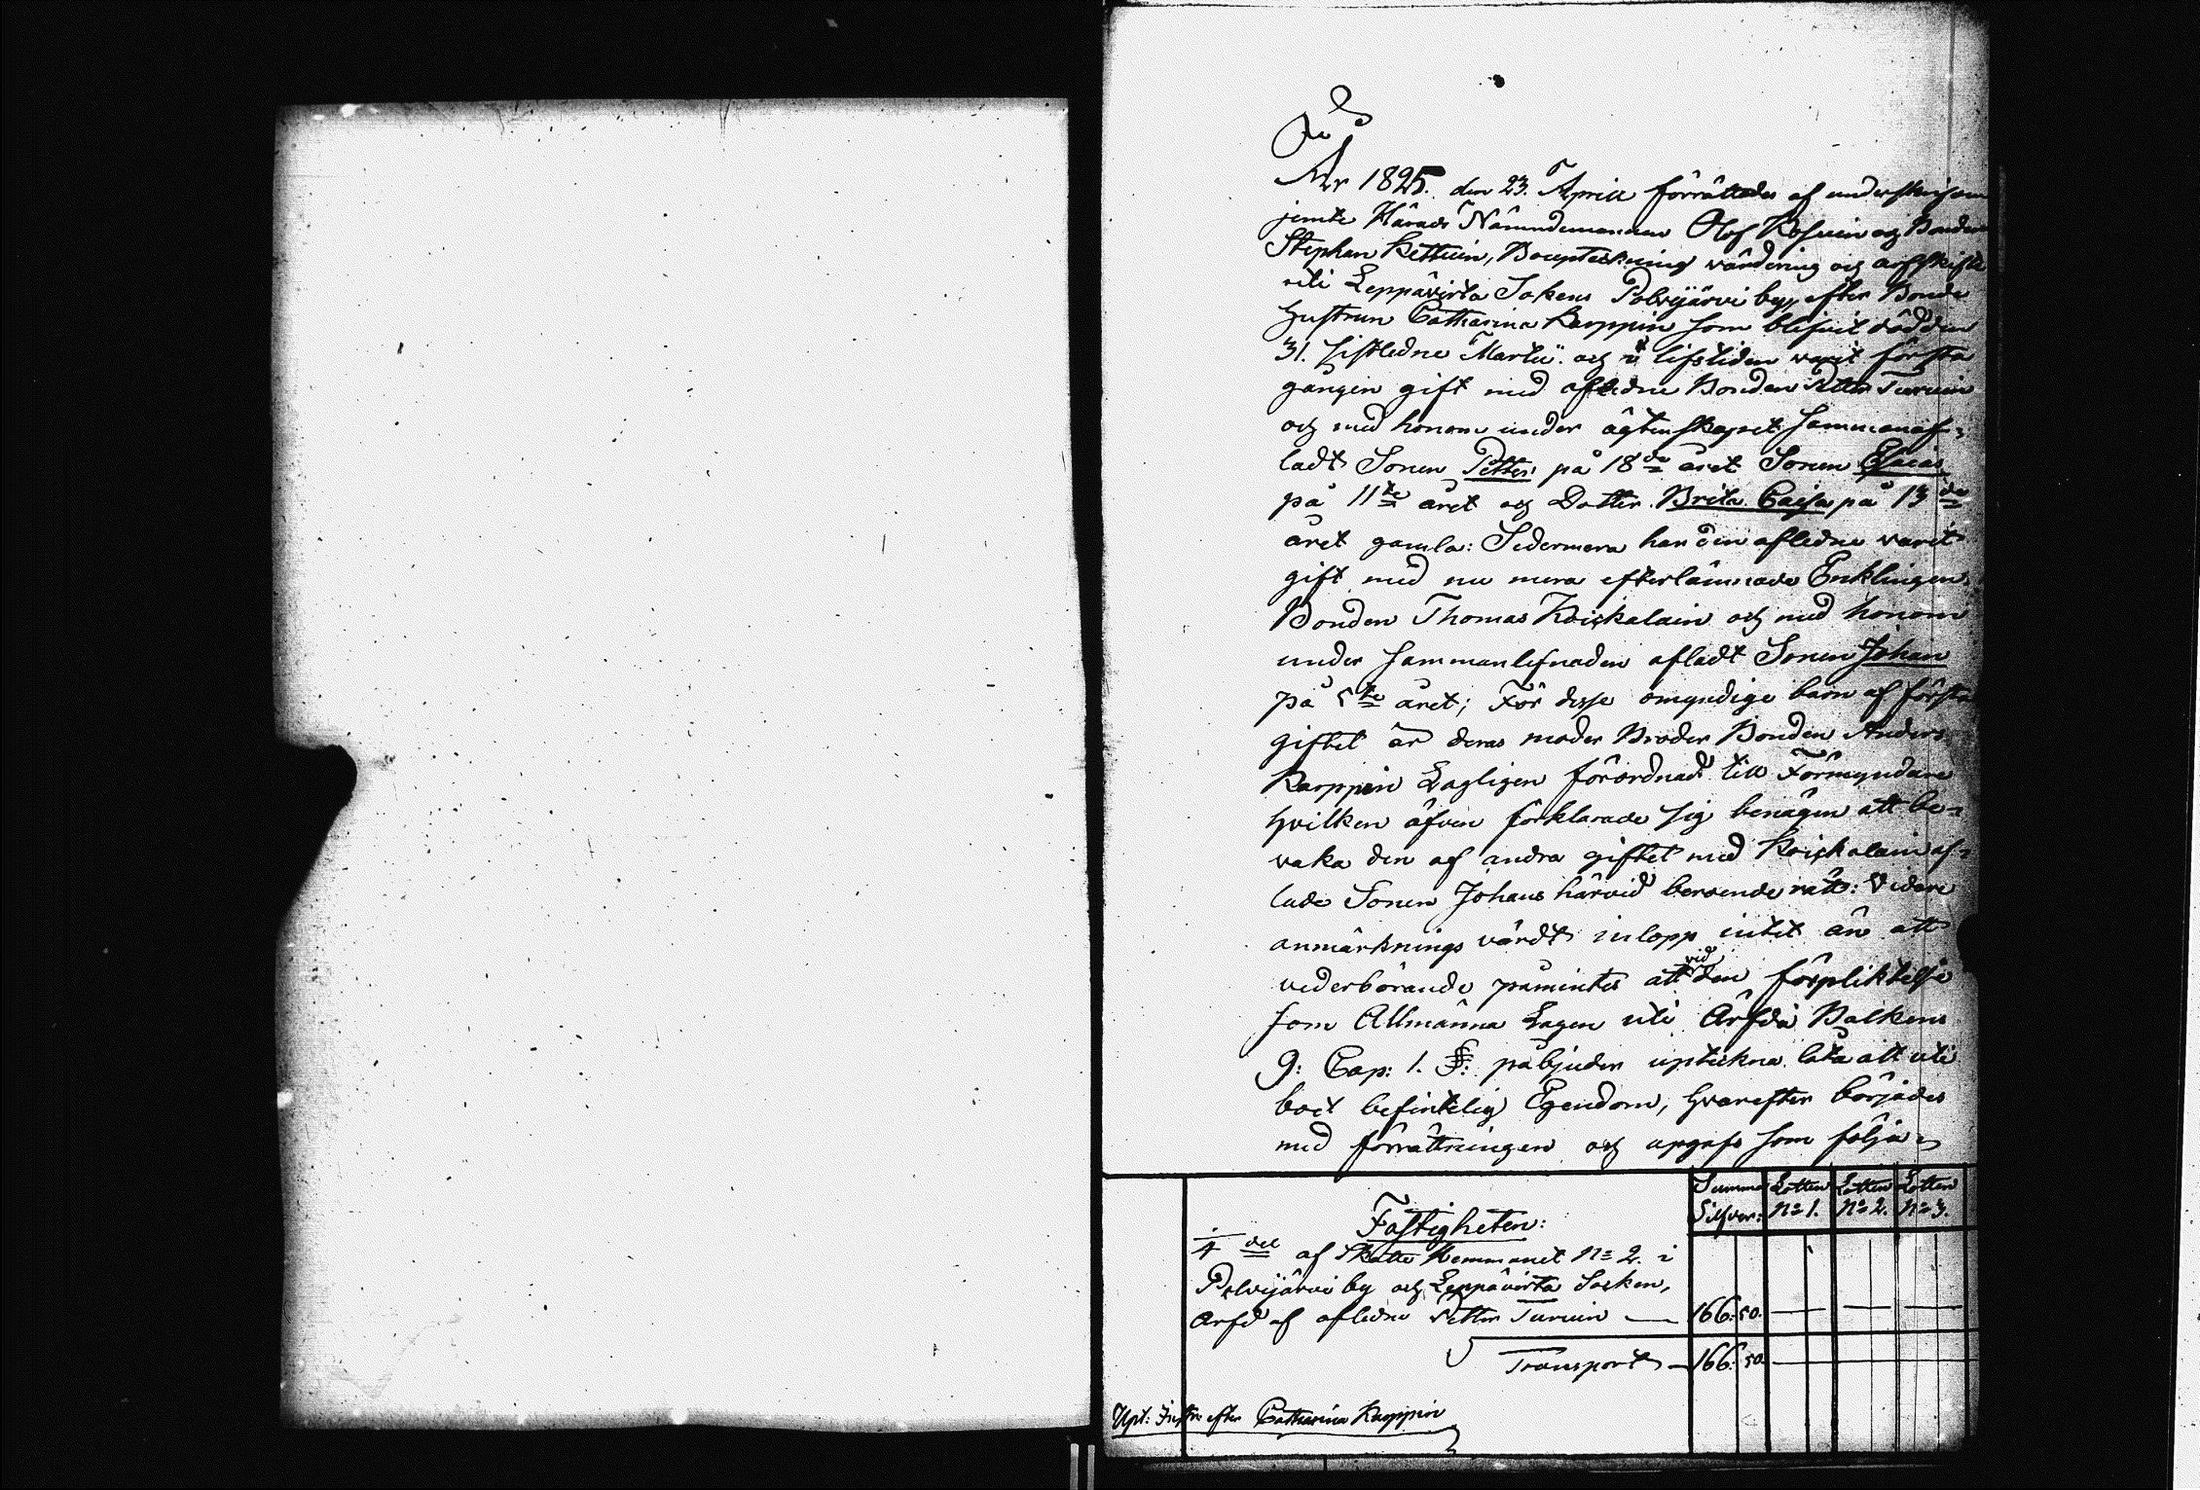 År 1825. den 23. Aprill förrättades af underskrifven
jemte Härads Nämndemannen Olof Kosuin och Bonden
Stephan Kettuin, Bouptekning värdering och arfskifte
uti Leppävirta Sokens Polvijärvi by, efter Bonde
hustrun Catharina Karppin som blifvit död den
31. sistledne Martii. och i lifstiden varit första
gången gift med afledne Bonden Petter Turuin
och med honom under ägtenskapet samman af-
ladt Sonen Petter på 18de året Sonen Esaias
på 11te året och Dotter Brita Caisa på 13de
året gamla: Sedermera har den afledne varit
gift med nu mera efterlämnade Enklingen
Bonden Thomas Koiskalain och med honom
under sammanlefnaden afladt Sonen Johan
på 5te året; För desse omyndige barn af första
giftet är deras moder Broder Bonden Anders
Karppin Lagligen förordnad till Förmyndare
hvilken äfven förklarade sig benägen att be-
vaka den af andra giftet med Koiskalain af-
lade Sonen Johans härvid beroende rätt: Vidare
anmärknings värdt inlopp intet än att
vederbörande påmintes att vid den förpliktelse
som Allmänna Lagen uti Ärfda Balkens
9: Cap: 1. §: påbjuder uptekna låta allt uti
boet befintelig Egendom, hvarefter börjades
med förrättningen och upgafs som följa-
Summa Silfver: Lotten No 1. Lotten No 2. Lotten No 3.
Fastigheten:
1/4 del af Skatte Hemmanet No 2. i
Polvijärvi by och Leppävirta Socken,
Ärfd af afledne Petter Turuin — 166: 50.
Transport — 166: 50.
Upt: Instr: efter Catharina Karppin